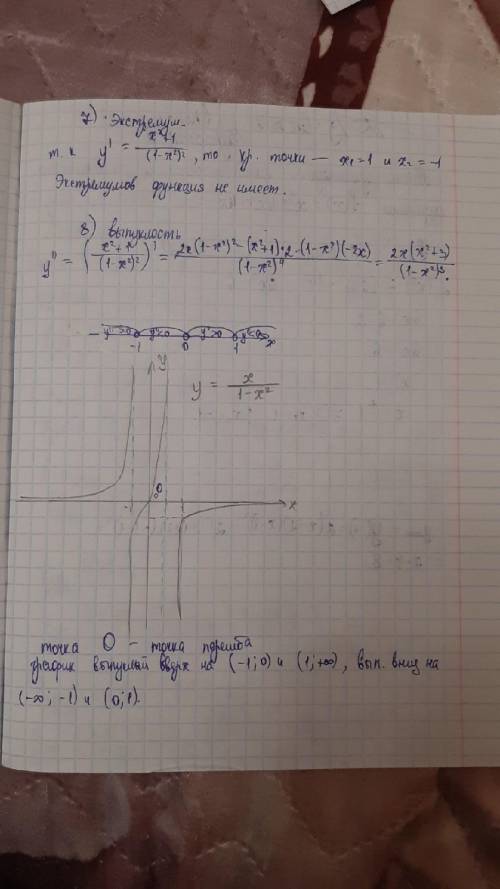 7) Экстремум.
т. к y' = x²+1 / (1-x²)², то кр. точки — x₁=1 и x₂=-1
Экстремумов функция не имеет.
8) выпуклость
y'' = (x²+1 / (1-x²)²)' = 2x(1-x²)² - (x²+1)·2·(1-x²)(-2x) / (1-x²)⁴ = 2x(x²+3) / (1-x²)³.
y''>0 y''<0 y''>0 y''<0
-1 0 1 x
y
y = x / 1-x²
0
-1 1 x
точка O — точка перегиба
график выпуклый вверх на (-1; 0) и (1; +∞), вып. вниз на
(-∞; -1) и (0; 1).